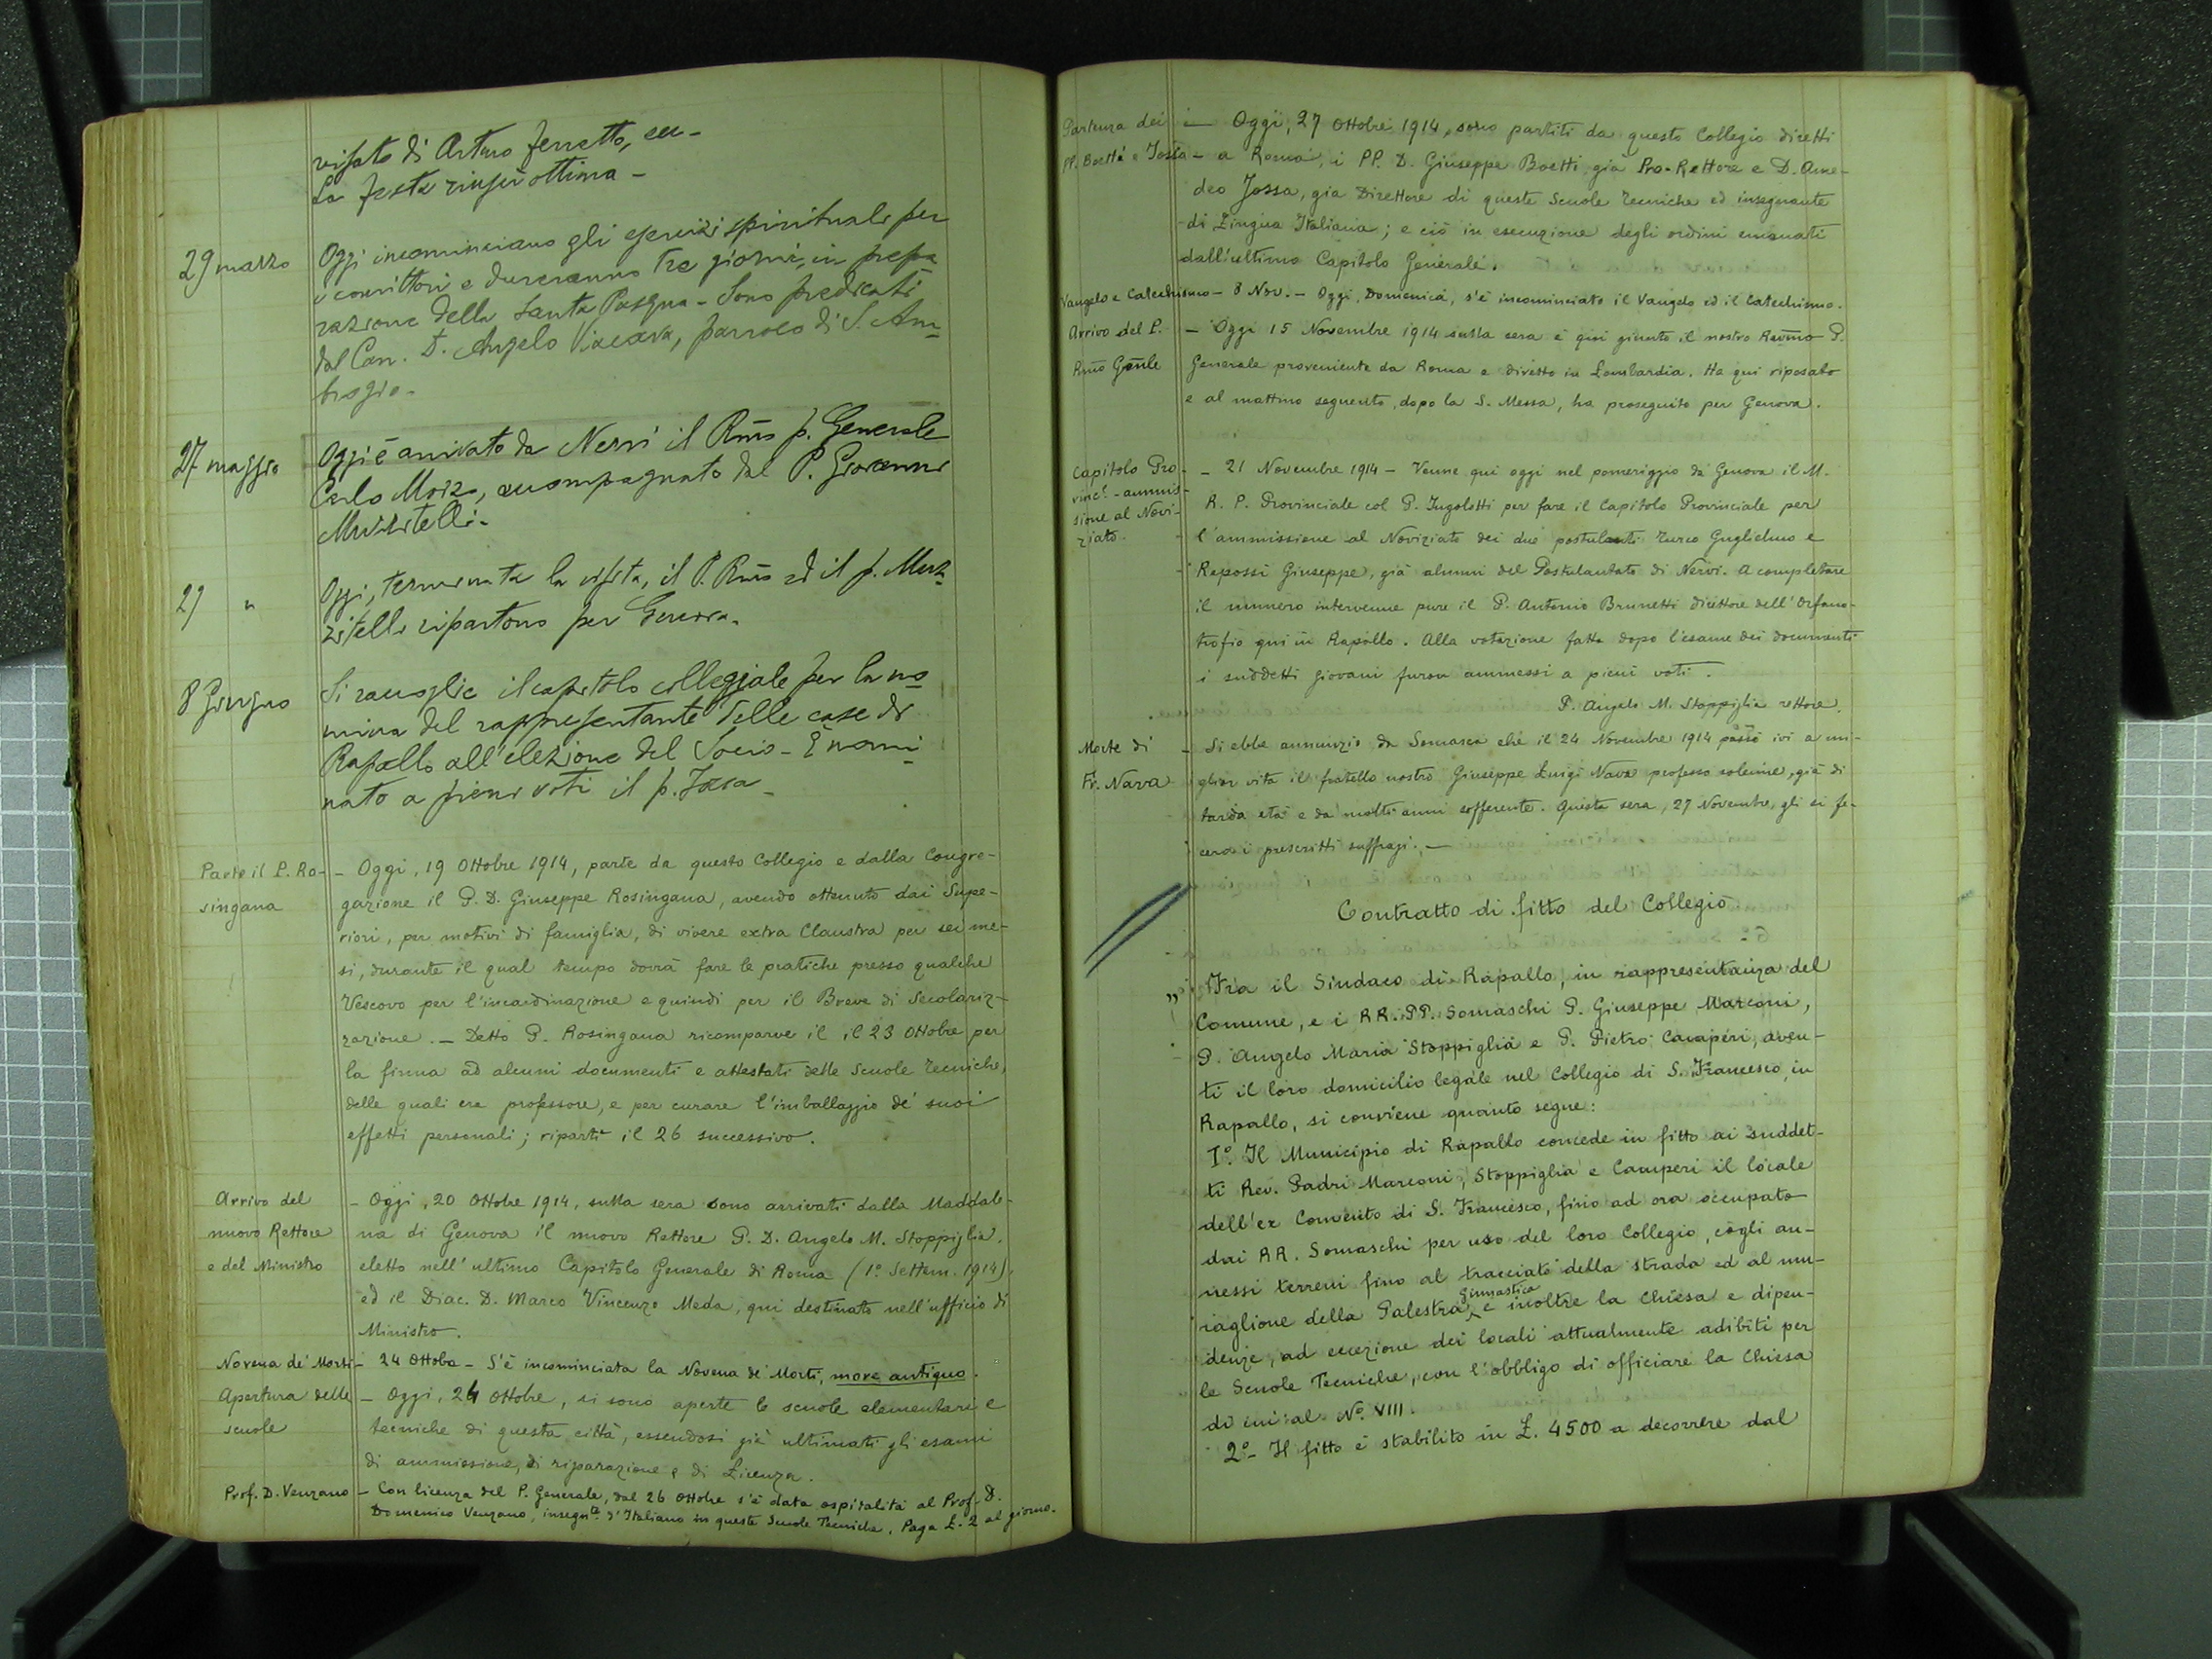 visato di Arturo Ferretto, ecc-
La festa riuscì ottima -
29 marzo Oggi incominciano gli esercizi spirituali per
i convittori e dureranno tre giorni, in prepa
razione della Santa Pasqua - Sono predicati
dal Can. D. Angelo Viacava, parroco di S. Am
brogio.
27 maggio Oggi è arrivato da Nervi il Rmo p. Generale
Carlo Moizo, accompagnato dal P. Giovanni
Muzzitelli.
29 " Oggi, terminata la visita, il P. Rmo ed il p. Muz
zitelli ripartono per Genova.
8 Giugno Si raccoglie il capitolo collegiale per la no
mina del rappresentante delle case di
Rapallo all'elezione del Socio - È nomi
nato a pieni voti il p. Iossa -
Parte il P. Ro- - Oggi, 19 Ottobre 1914, parte da questo Collegio e dalla Congre-
singana gazione il P. D. Giuseppe Rosingana, avendo ottenuto dai Supe-
riori, per motivi di famiglia, di vivere extra Claustra per sei me-
si, durante il qual tempo dovrà fare le pratiche presso qualche
Vescovo per l'incardinazione e quindi per il Breve di Secolariz-
zazione. - Detto P. Rosingana ricomparve il il 23 Ottobre per
la firma ad alcuni documenti e attestati delle Scuole Tecniche,
delle quali era professore, e per curare l'imballaggio de' suoi
effetti personali; ripartì il 26 successivo.
Arrivo del - Oggi, 20 Ottobre 1914, sulla sera sono arrivati dalla Maddale-
nuovo Rettore na di Genova il nuovo Rettore P. D. Angelo M. Stoppiglia,
e del Ministro eletto nell'ultimo Capitolo Generale di Roma (1º Settem. 1914),
ed il Diac. D. Marco Vincenzo Meda, qui destinato nell'ufficio di
Ministro.
Novena de' Morti - 24 Ottobre - S'è incominciata la Novena de' Morti, more antiquo.
Apertura delle - Oggi, 24 Ottobre, si sono aperte le scuole elementari e
scuole tecniche di questa città, essendosi già ultimati gli esami
di ammissione, di riparazione e di Licenza.
Prof. D. Venzano - Con licenza del P. Generale, dal 26 Ottobre s'è data ospitalità al Prof. D.
Domenico Venzano, insegnte d'Italiano in queste Scuole Tecniche. Paga £. 2 al giorno.
Partenza dei - Oggi, 27 Ottobre 1914, sono partiti da questo Collegio diretti
PP. Boetti e Jossa - a Roma, i PP. D. Giuseppe Boetti, già Pro-Rettore e D. Ame-
deo Jossa, già Direttore di queste Scuole Tecniche ed insegnante
di Lingua Italiana; e ciò in esecuzione degli ordini emanati
dall'ultimo Capitolo Generale.
Vangelo e Catechismo - 8 Nov. - Oggi, Domenica, s'è incominciato il Vangelo ed il Catechismo.
Arrivo del P. - Oggi 15 Novembre 1914 sulla sera è qui giunto il nostro Revmo P.
Rmo Gnle Generale proveniente da Roma e diretto in Lombardia. Ha qui riposato
e al mattino seguente, dopo la S. Messa, ha proseguito per Genova.
Capitolo Pro- - 21 Novembre 1914 - Venne qui oggi nel pomeriggio da Genova il M.
vincle - ammis- R. P. Provinciale col P. Ingolotti per fare il Capitolo Provinciale per
sione al Novi- l'ammissione al Noviziato dei due postulanti Turco Guglielmo e
ziato. Repossi Giuseppe, già alunni del Postulantato di Nervi. A completare
il numero intervenne pure il P. Antonio Brunetti Direttore dell'Orfano-
trofio qui in Rapallo. Alla votazione fatta dopo l'esame dei documenti
i suddetti giovani furon ammessi a pieni voti.
P. Angelo M. Stoppiglia rettore.
Morte di - Si ebbe annunzio da Somasca che il 24 Novembre 1914 passò ivi a mi-
Fr. Nava glior vita il fratello nostro Giuseppe Luigi Nava professo solenne, già di
tarda età e da molti anni sofferente. Questa sera, 27 Novembre, gli si fe-
cero i prescritti suffragi. -
Contratto di fitto del Collegio
" Fra il Sindaco di Rapallo, in rappresentanza del
Comune, e i RR. PP. Somaschi P. Giuseppe Marconi,
P. Angelo Maria Stoppiglia e P. Pietro Camperi, aven-
ti il loro domicilio legale nel Collegio di S. Francesco, in
Rapallo, si conviene quanto segue:
1º. Il Municipio di Rapallo concede in fitto ai suddet-
ti Rev. Padri Marconi, Stoppiglia e Camperi il locale
dell'ex Convento di S. Francesco, fino ad ora occupato
dai RR. Somaschi per uso del loro Collegio, cogli an-
nessi terreni fino al tracciato della strada ed al mu-
raglione della Palestra ginnastica e inoltre la Chiesa e dipen-
denze, ad eccezione dei locali attualmente adibiti per
le Scuole Tecniche, con l'obbligo di officiare la Chiesa
di cui al Nº. VIII.
2º - Il fitto è stabilito in £. 4500 a decorrere dal